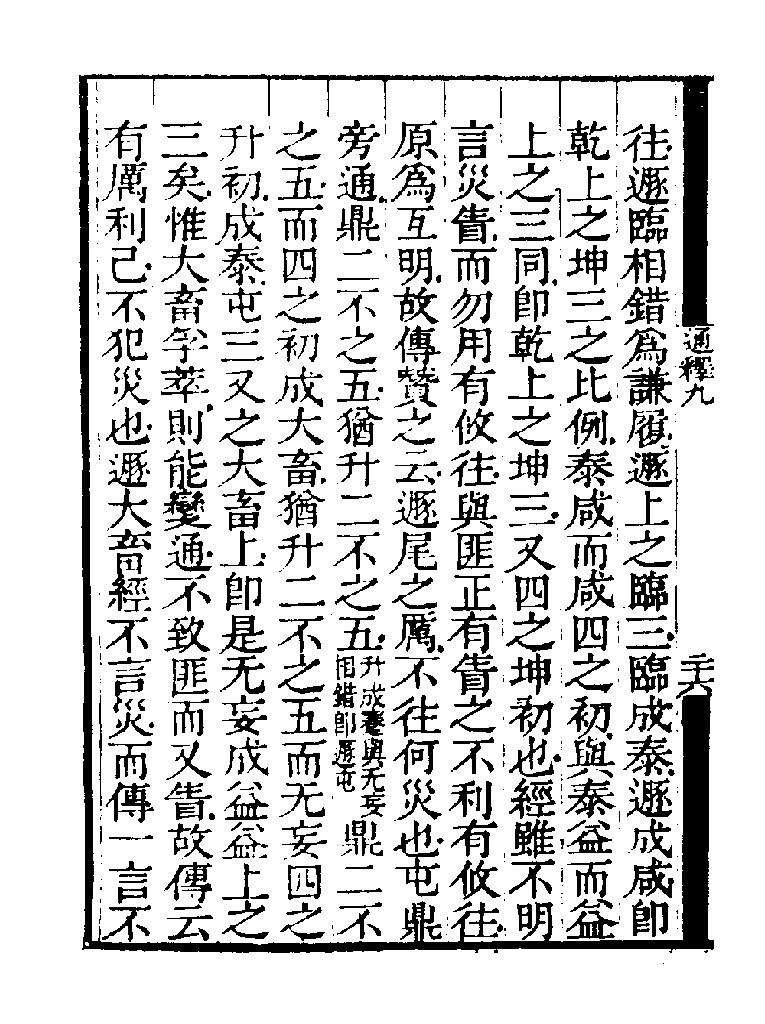 通釋九
二十六
往遯臨相錯爲謙履遯上之臨三臨成泰遯成咸卽
乾上之坤三之比例泰咸而咸四之初與泰益而益
上之三同卽乾上之坤三又四之坤初也經雖不明
言災眚而勿用有攸往與匪正有眚之不利有攸往
原爲互明故傳贊之云遯尾之厲不往何災也屯鼎
旁通鼎二不之五猶升二不之五升成蹇與无妄相錯卽遯屯鼎二不
之五而四之初成大畜猶升二不之五而无妄四之
升初成泰屯三又之大畜上卽是无妄成益益上之
三矣惟大畜孚萃則能變通不致匪而又眚故傳云
有厲利已不犯災也遯大畜經不言災而傳一言不